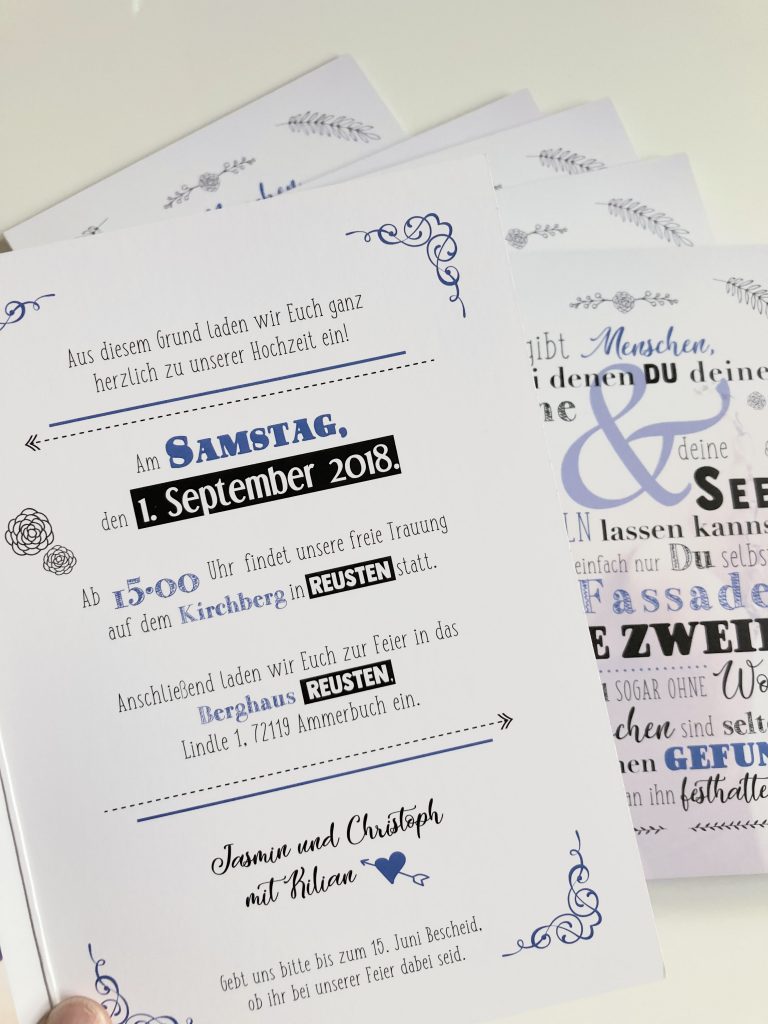 Aus diesem Grund laden wir Euch ganz
herzlich zu unserer Hochzeit ein!
Am SAMSTAG,
den 1. September 2018.
Ab 15.00 Uhr findet unsere freie Trauung
auf dem Kirchberg in REUSTEN statt.
Anschließend laden wir Euch zur Feier in das
Berghaus REUSTEN.
Lindle 1, 72119 Ammerbuch ein.
Jasmin und Christoph
mit Kilian
Gebt uns bitte bis zum 15. Juni Bescheid,
ob ihr bei unserer Feier dabei seid.
Menschen,
gibt Menschen,
denen DU deine
&
deine
SEE
LN lassen kanns
einfach nur Du selbs
Fassade
E ZWEI
SOGAR OHNE Wo
chen sind selt
en GEFUN
an ihn festhalte